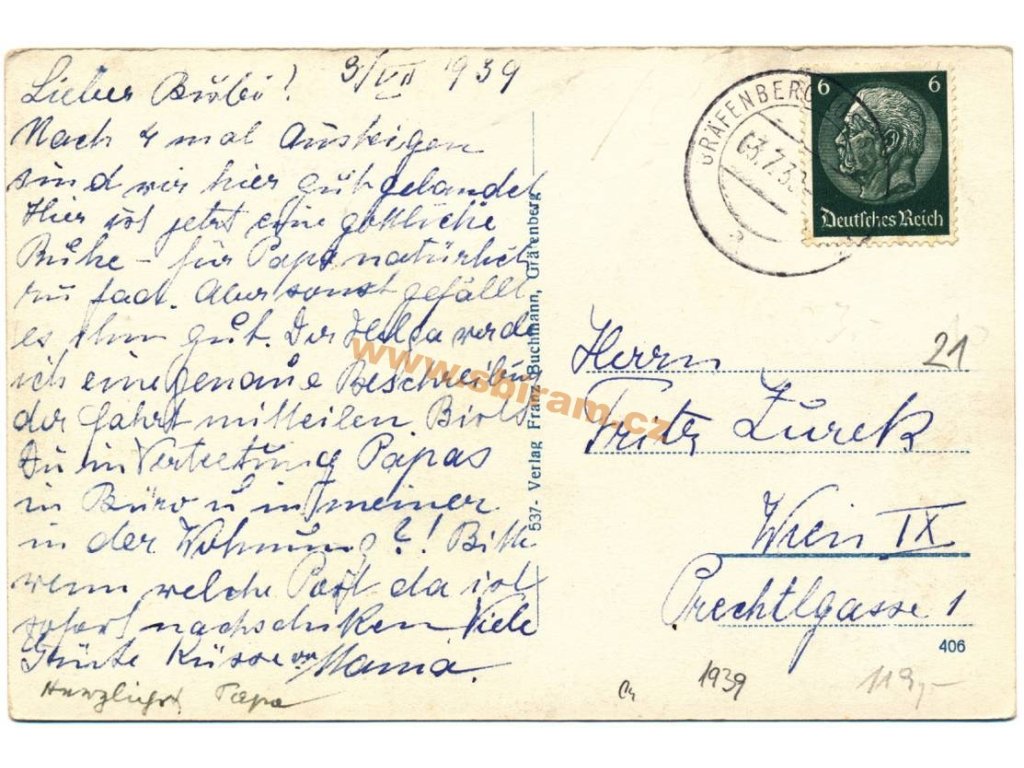 3/VII 1939
Lieber Bürbi!
Nach 4 mal Aussteigen
sind wir hier gut gelandet
Hier ist jetzt eine göttliche
Ruhe – für Papa natürlich
zu fad. Aber sonst gefällt
es ihm gut. Der Helga werde
ich eine genaue Beschreibung
der Fahrt mitteilen. Bist
Du in Vertretung Papas
in Büro u in meiner
in der Wohnung?! Bitte
wenn welche Post da ist
sofort nachschicken Viele
Grüße Küsse von Mama.
Herzlichst Papa
537- Verlag Franz Buchmann, Gräfenberg
GRÄFENBERG
03.7.39
6 6
Deutsches Reich
21
Herrn
Fritz Zurek
Wien IX
Prechtlgasse 1
406
1939
119,-
www.sbiram.cz